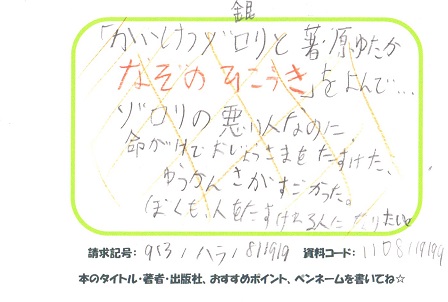 銀
「かいけつゾロリと 著 原ゆたか
なぞのひこうき」をよんで…
ゾロリの悪い人なのに、
命がけでおじょうさまをたすけた、
ゆうかんさがすごかった。
ぼくも、人をたすける人になりたい。
請求記号: 913 / ハラ / 資料コード:
本のタイトル・著者・出版社、おすすめポイント、ペンネームを書いてね☆